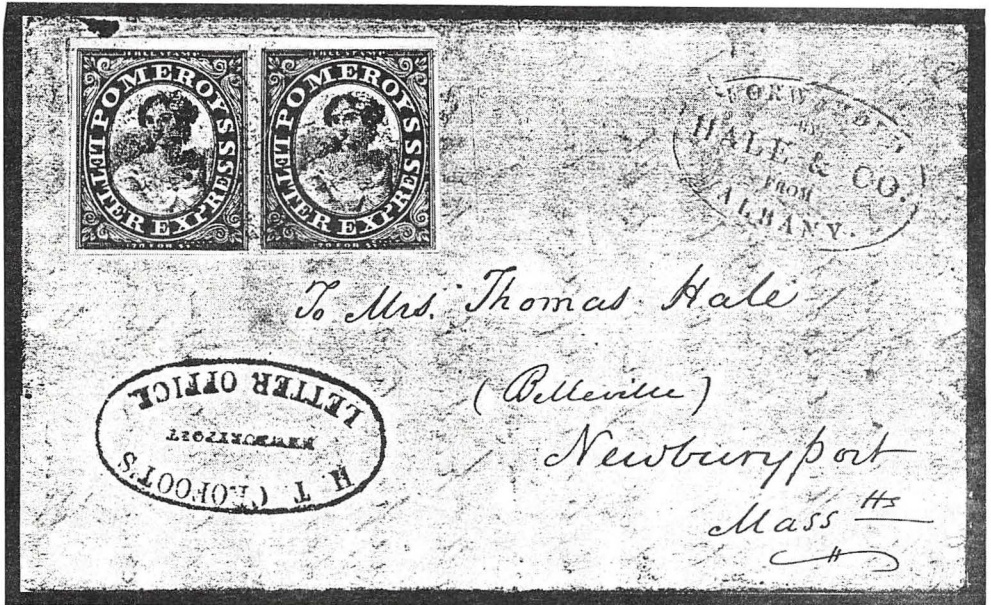 FREE STAMP
POMEROY'S LETTER EXPRESS
20 FOR $1
FREE STAMP
POMEROY'S LETTER EXPRESS
20 FOR $1
FORWARDED
BY
HALE & CO.
FROM
ALBANY.
To Mrs. Thomas Hale
(Belleville)
Newburyport
Mass tts
H T
LETTER OFFICE
NEWBURYPORT